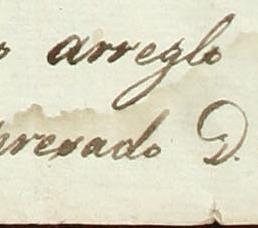 o arreglo
presado D.